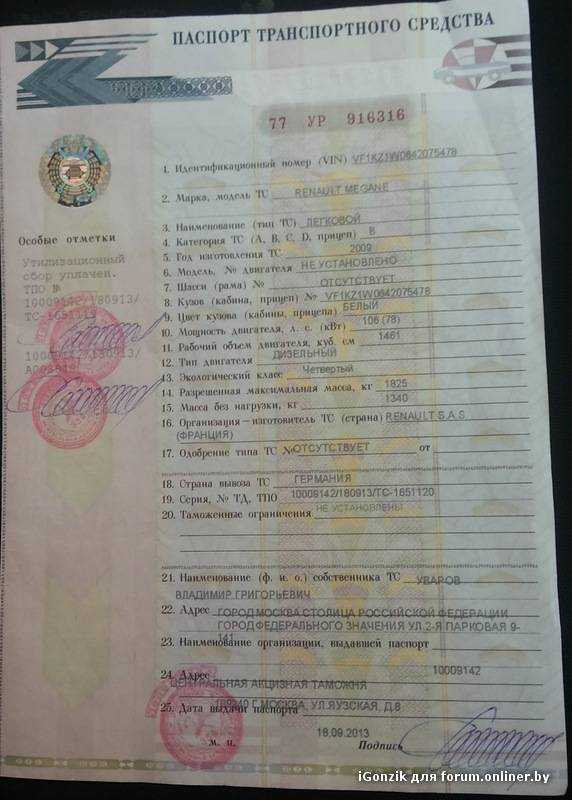 ПАСПОРТ ТРАНСПОРТНОГО СРЕДСТВА
77 УР 916316
1. Идентификационный номер (VIN) VF1KZ1W0642075478
2. Марка, модель ТС RENAULT MEGANE
3. Наименование (тип ТС) ЛЕГКОВОЙ
4. Категория ТС (A, B, C, D, прицеп) B
5. Год изготовления ТС 2009
6. Модель, № двигателя НЕ УСТАНОВЛЕНО
7. Шасси (рама) № ОТСУТСТВУЕТ
8. Кузов (кабина, прицеп) № VF1KZ1W0642075478
9. Цвет кузова (кабины, прицепа) БЕЛЫЙ
10. Мощность двигателя, л. с. (кВт) 106 (78)
11. Рабочий объем двигателя, куб. см 1461
12. Тип двигателя ДИЗЕЛЬНЫЙ
13. Экологический класс Четвертый
14. Разрешенная максимальная масса, кг 1825
15. Масса без нагрузки, кг 1340
16. Организация–изготовитель ТС (страна) RENAULT S.A.S
(ФРАНЦИЯ)
17. Одобрение типа ТС № ОТСУТСТВУЕТ от
18. Страна вывоза ТС ГЕРМАНИЯ
19. Серия, № ТД, ТПО 10009142/180913/ТС-1651120
20. Таможенные ограничения НЕ УСТАНОВЛЕНЫ
21. Наименование (ф. и. о.) собственника ТС УВАРОВ
ВЛАДИМИР ГРИГОРЬЕВИЧ
22. Адрес ГОРОД МОСКВА СТОЛИЦА РОССИЙСКОЙ ФЕДЕРАЦИИ
ГОРОД ФЕДЕРАЛЬНОГО ЗНАЧЕНИЯ УЛ.2-Я ПАРКОВАЯ 9-
141
23. Наименование организации, выдавшей паспорт
10009142
24. Адрес
ЦЕНТРАЛЬНАЯ АКЦИЗНАЯ ТАМОЖНЯ
Г.МОСКВА, УЛ.ЯУЗСКАЯ, Д.8
25. Дата выдачи паспорта
18.09.2013
М. П. Подпись
Особые отметки
Утилизационный
сбор уплачен.
ТПО №
10009142/180913/
10009142/180913/
iGonzik для forum.onliner.by